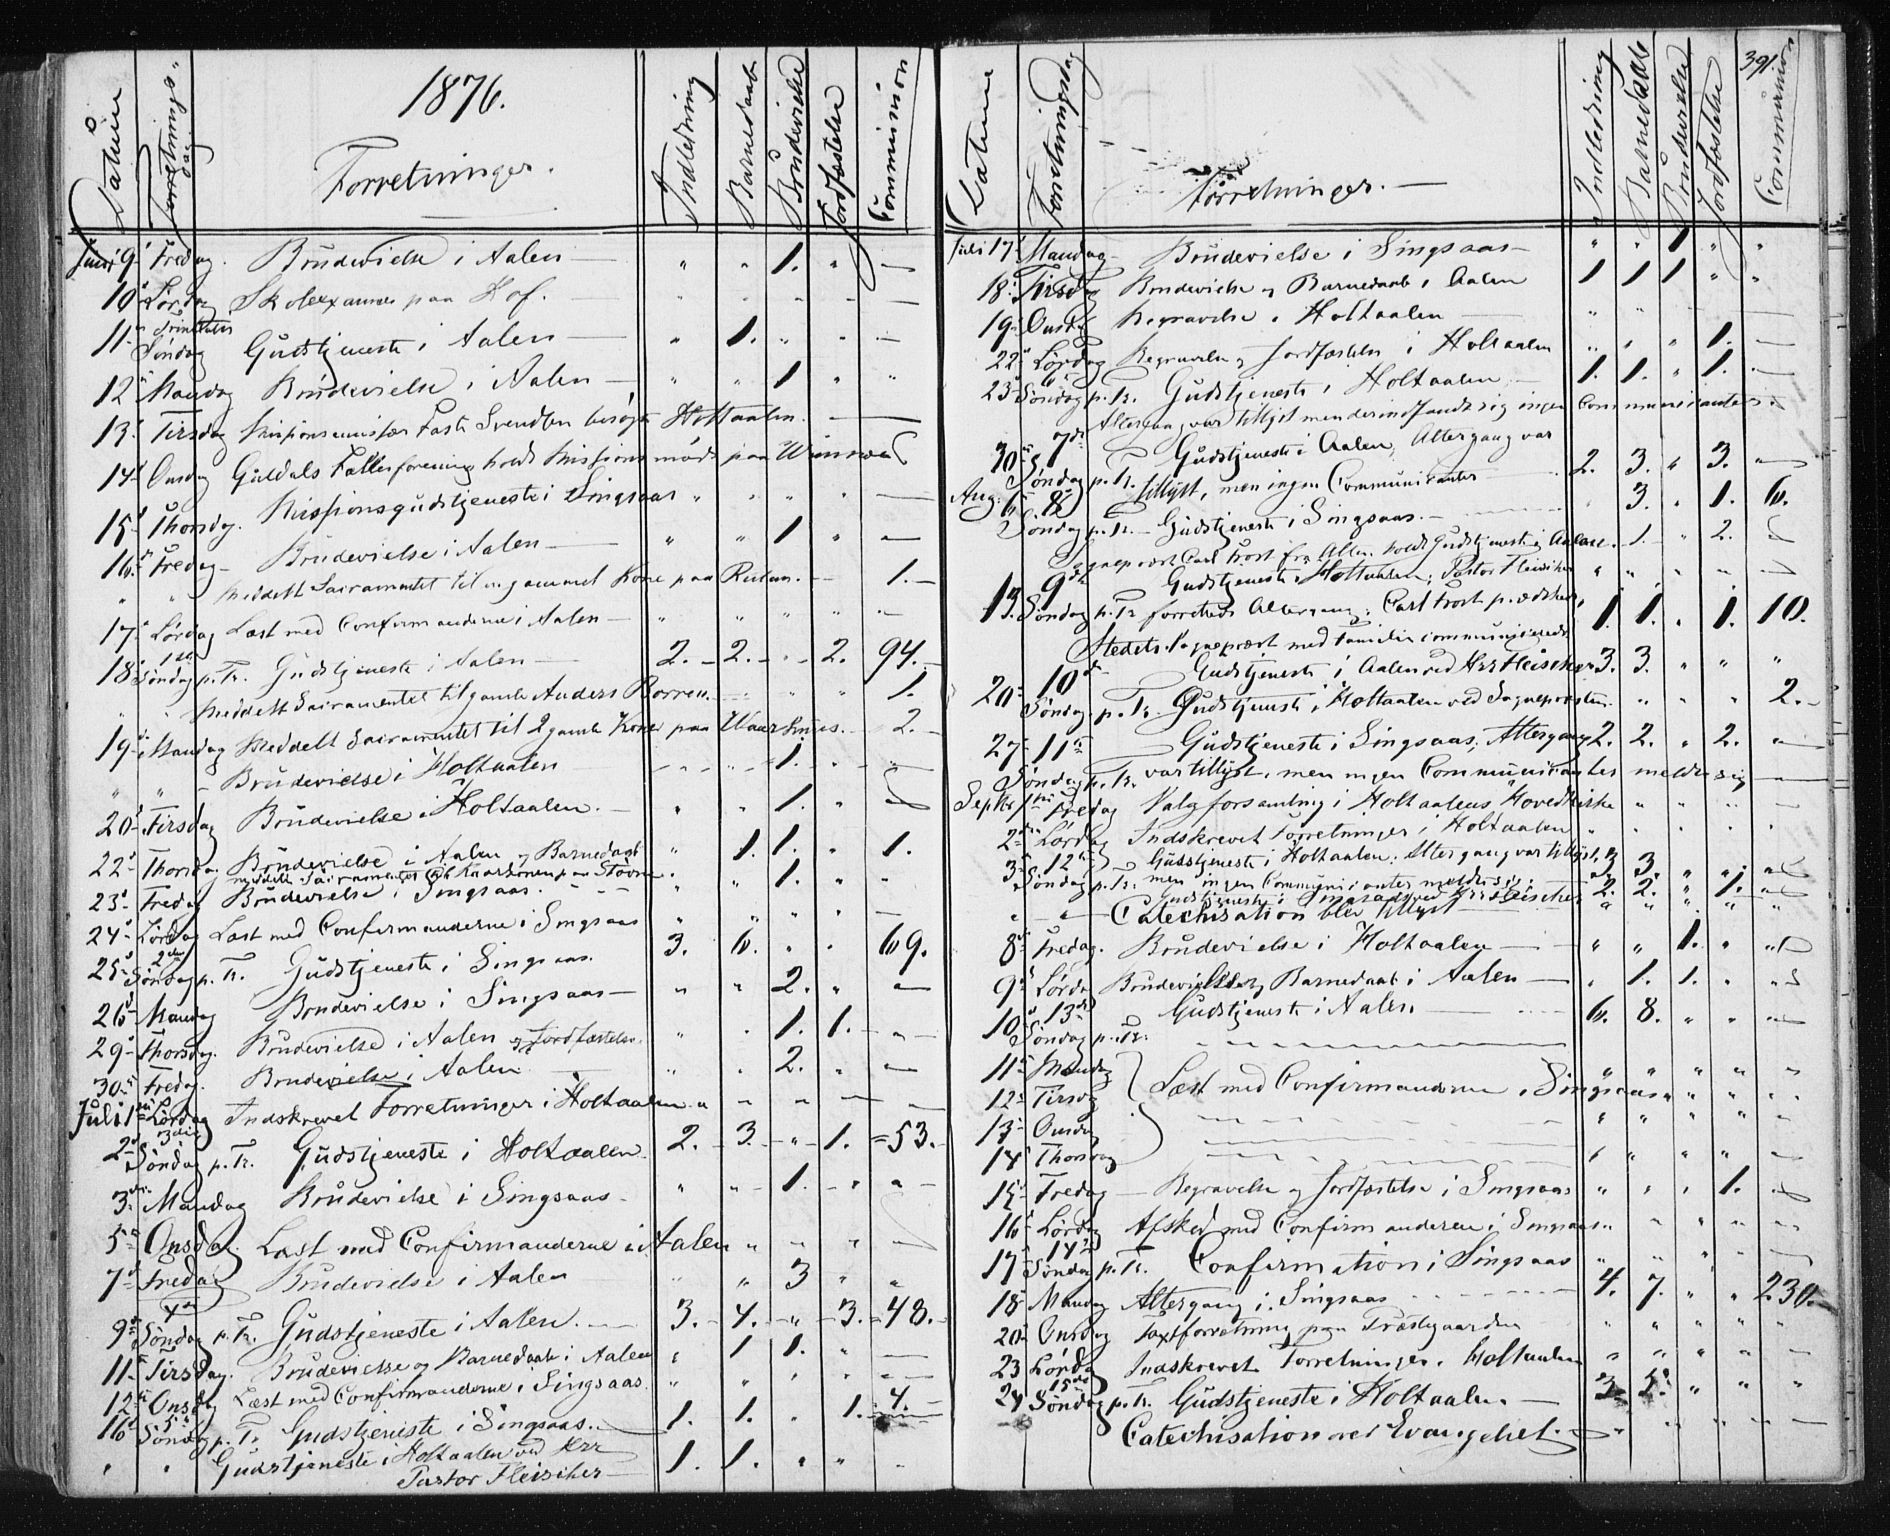 1876.
Datum Forretnings dag Forretninger. Indledning Barnedaab Brudevielse Jordfæstelse Communion
Juni 9 Fredag. Brudevielse i Aalen — " " 1. " —
10 Lørdag Skoleexamen paa Hof.
Trinitatis
11 Søndag Gudstjeneste i Aalen " 1. " " —
12 Mandag Brudevielse i Aalen — " " 1 " "
13 Tirsdag Missionsemissær Svendsen besøgte Holtaalen. —
14 Onsdag Guldals Fællesforening holdt Missionsmøde paa
15 Thorsdag. Missionsgudstjeneste i Singsaas " " " " —
16 Fredag Brudevielse i Aalen — " " 1 " —
" " Meddelt Sacramentet til en gammel Kone paa 1.
17 Lørdag Læst med Confirmanderne i Aalen — " " " " —
1ste
18 Søndag p. Tr. Gudstjeneste i Aalen — 2. 2. " 2. 94.
" " Meddelt Sacramentet til gamle Anders Borren 1.
19 Mandag Meddelt Sacramentet til 2 gamle Koner paa 2.
" " Brudevielse i Holtaalen 1.
20 Tirsdag Brudevielse i Holtaalen. — " " 1. "
22 Thorsdag Brudevielse i Aalen og Barnedaab " 1. 1. " 1.
meddelt Sacramentet til paa
23 Fredag Brudevielse i Singsaas. " " 1. "
24 Lørdag Læst med Confirmanderne i Singsaas " " " " —
2den
25 Søndag p. Tr. Gudstjeneste i Singsaas. 3. 6. " " 69.
26 Mandag Brudevielse i Singsaas — " " 2. " —
29 Thorsdag. Brudevielse i Aalen og Jordfæstelse. " " 1. 1. "
30 Fredag. Brudevielse i Aalen " " 2. " —
Juli 1 Lørdag Indskrevet Forretninger i Holtaalen
3die
2 Søndag p. Tr. Gudstjeneste i Holtaalen 2. 3. " 1. 53.
3 Mandag Brudevielse i Singsaas — " " 1. " "
5 Onsdag. Læst med Confirmanderne i Aalen " " "
7 Fredag Brudevielse i Aalen " " 3 " "
4de
9 Søndag p. Tr. Gudstjeneste i Aalen. 3. 4. " 3. 48.
11 Tirsdag. Brudevielse og Barnedaab i Aalen " 1 1. " —
12 Onsdag Læst med Confirmanderne i Singsaas. " " " " "
5te
16 Søndag p. Tr Gudstjeneste i Singsaas. — 1. 1. " 1. 4.
" " Gudstjeneste i Holtaalen ved Hrr
Pastor Fleischer — 1. 1. " " "
391.
Datum Forretningsdag Forretninger. — Indledning Barnedaab Brudevielse Jordfæstelse Communion
Juli 17 Mandag Brudevielse i Singsaas — " " 1 " "
18 Tirsdag Brudevielse og Barnedaab i Aalen 1 1 1 " "
19 Onsdag Begravelse i Holtaalen — " " —
22 Lørdag Begravelse og Jordfæstelse i Holtaalen " " " 1. —
6te
23 Søndag p. Tr. Gudstjeneste i Holtaalen — 1. 1. " 1. —
Altergang var tillyst men der indfandt sig ingen Communicanter.
7de
30 Søndag p. Tr. Gudstjeneste i Aalen, Altergang var
tillyst, men ingen Communicanter 2. 3. " 3. —
Aug. 6 8de
Søndag p. Tr. — Gudstjeneste i Singsaas. — 3. " 1. 6.
Sognepræst Carl Trost fra holdt Gudstjeneste i Aalen. 1. " 2.
9de Gudstjeneste i Holtaalen; Pastor Fleischer
13 Søndag p. Tr forrettede Altergang; Carl Trost prædikede, 1. 1. " 1. 10.
Stedets Sognepræst med Familie communicerede
10de Gudstjeneste i Aalen ved Hrr Fleischer 3. 3. " " "
20 Søndag p. Tr. Gudstjeneste i Holtaalen ved Sognepræsten. " " " " 2.
27 11te Gudstjeneste i Singsaas; Altergang 2. 2. " 2. "
Søndag p. Tr. var tillyst, men ingen Communicanter meldte sig
Septr 1 Fredag Valgforsamling i Holtaalens Hovedkirke " " " "
2 Lørdag Indskrevet Forretninger i Holtaalen " " " " "
3 12te Gudstjeneste i Holtaalen; Altergang var tillyst, 3. " "
Søndag p. Tr. men ingen Communicanter meldte sig.
Gudstjeneste i Singsaas ved Hrr Fleischer 2. 2. " 1. "
" " Catechisation blev tillyst — " " " " "
8 Fredag. Brudevielse i Holtaalen — " " 1. " "
9 Lørdag Brudevielse og Barnedaab i Aalen — " 1. 1. " "
10 13de Gudstjeneste i Aalen. — 6. 8. " " "
Søndag p. Tr.
11 Mandag
12 Tirsdag Læst med Confirmanderne i Singsaas " " " "
13 Onsdag
14 Thorsdag
15 Fredag — Begravelse og Jordfæstelse i Singsaas " " " 1. "
16 Lørdag Afsked med Confirmanderne i Singsaas " " " "
14de
17 Søndag p. Tr. Confirmation i Singsaas " " " "
18 Mandag Altergang i Singsaas 4. 7. " " 230.
20 Onsdag Taxtforretning paa Præstegaarden " " " " "
23 Lørdag Indskrevet Forretninger i Holtaalen " " " " "
15de
24 Søndag p. Tr. Gudstjeneste i Holtaalen. — 3. 5. " " "
Catechisation over Evangeliet. —